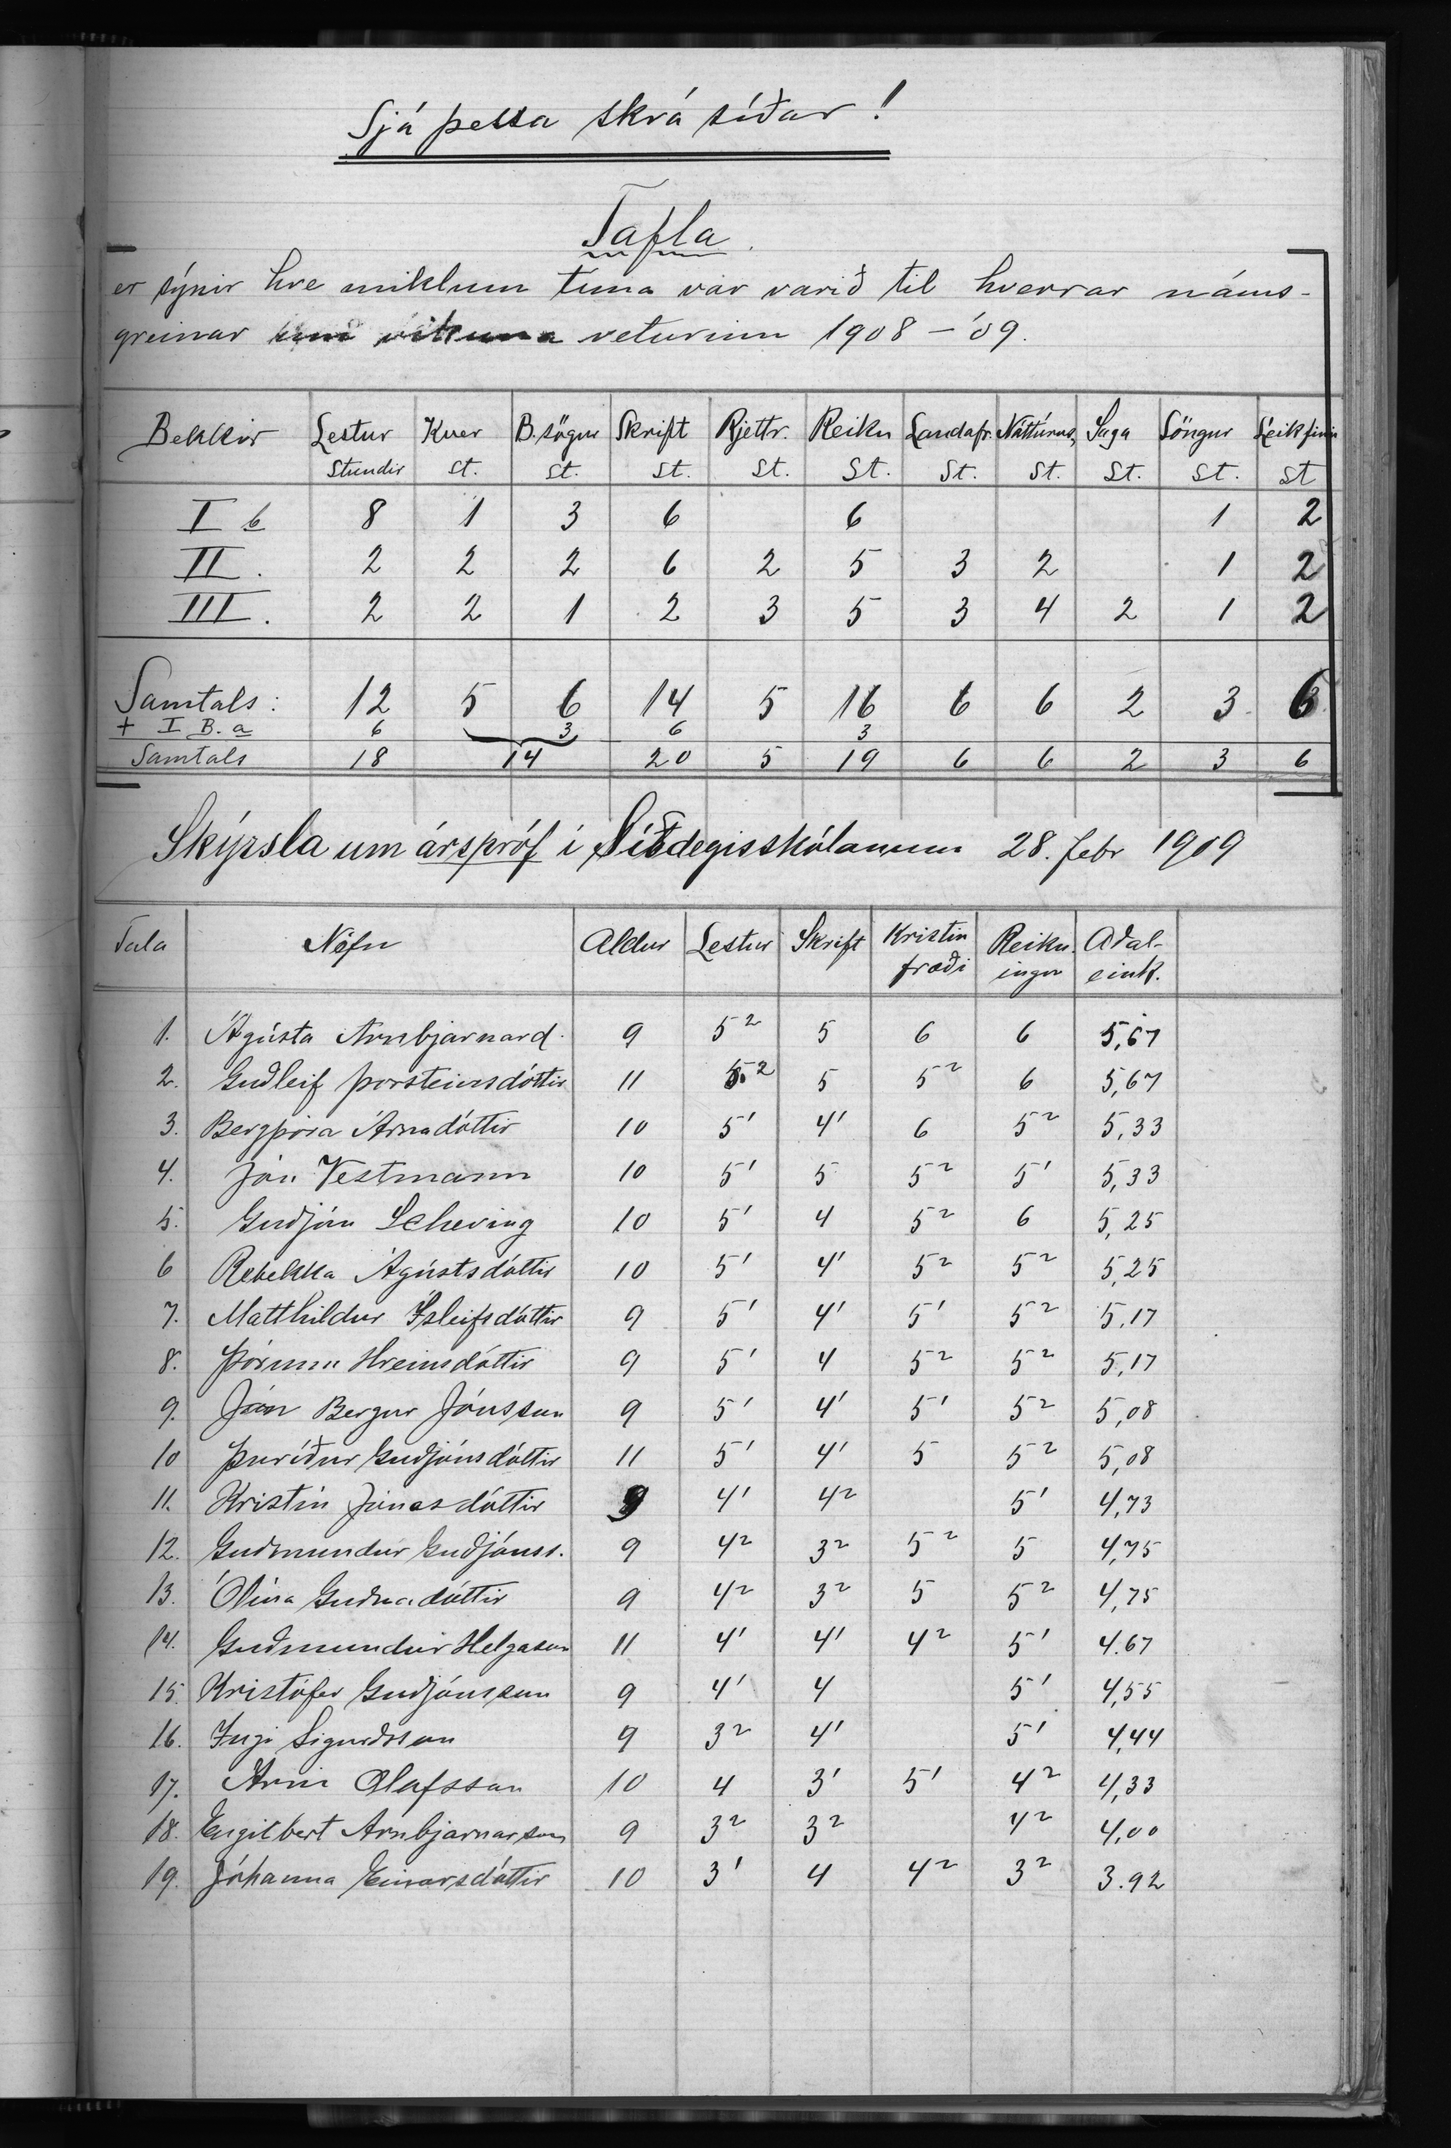 Sjá þessa skrá síðar!
Tafla.
er sýnir hve miklum tíma var varið til hverrar náms-
greinar um vikuna veturinn 1908-'09.
Bekkir Lestur Kver B.sögur Skrift Rjettr. Reikn Landafr. Náttúrus, Saga Söngur Leikfimi
stundir st. st. st. st. st. st. st. st. st. st
I b 8 1 3 6 6 1 2
II. 2 2 2 6 2 5 3 2 1 2
III. 2 2 1 2 3 5 3 4 2 1 2
Samtals: 12 5 6 14 5 16 6 6 2 3 6
+ I B. a 6 3 6 3
Samtals 18 14 20 5 19 6 6 2 3 6
Skýrsla um árspróf í Síðdegisskólanum 28. febr 1909
Tala Nöfn Aldur Lestur Skrift Kristin fræði Reikn. ingur Aðal- eink.
1. Ágústa Arnbjarnard. 9 5² 5 6 6 5,67
2. Guðleif Þorsteinsdóttir 11 5.² 5 5² 6 5,67
3. Bergþóra Árnadóttir 10 5' 4' 6 5² 5,33
4. Jón Vestmann 10 5' 5 5² 5' 5,33
5. Guðjón Scheving 10 5' 4 5² 6 5,25
6 Rebekka Ágústsdóttir 10 5' 4' 5² 5² 5,25
7. Matthildur Ísleifsdóttir 9 5' 4' 5' 5² 5,17
8. Þórunn Hreinsdóttir 9 5' 4 5² 5² 5,17
9. Jón Bergur Jónsson 9 5' 4' 5' 5² 5,08
10 Þuríður Guðjónsdóttir 11 5' 4' 5 5² 5,08
11. Kristín Jónasdóttir 9 4' 4² 5' 4,73
12. Guðmundur Guðjónss. 9 4² 3² 5² 5 4,75
13. Ólína Guðnadóttir 9 4² 3² 5 5² 4,75
14. Guðmundur Helgason 11 4' 4' 4² 5' 4.67
15. Kristófer Guðjónsson 9 4' 4 5' 4,55
16. Ingi Sigurðsson 9 3² 4' 5' 4,44
17. Árni Ólafsson 10 4 3' 5' 4² 4,33
18. Engilbert Arnbjarnarson 9 3² 3² 4² 4,00
19. Jóhanna Einarsdóttir 10 3' 4 4² 3² 3.92